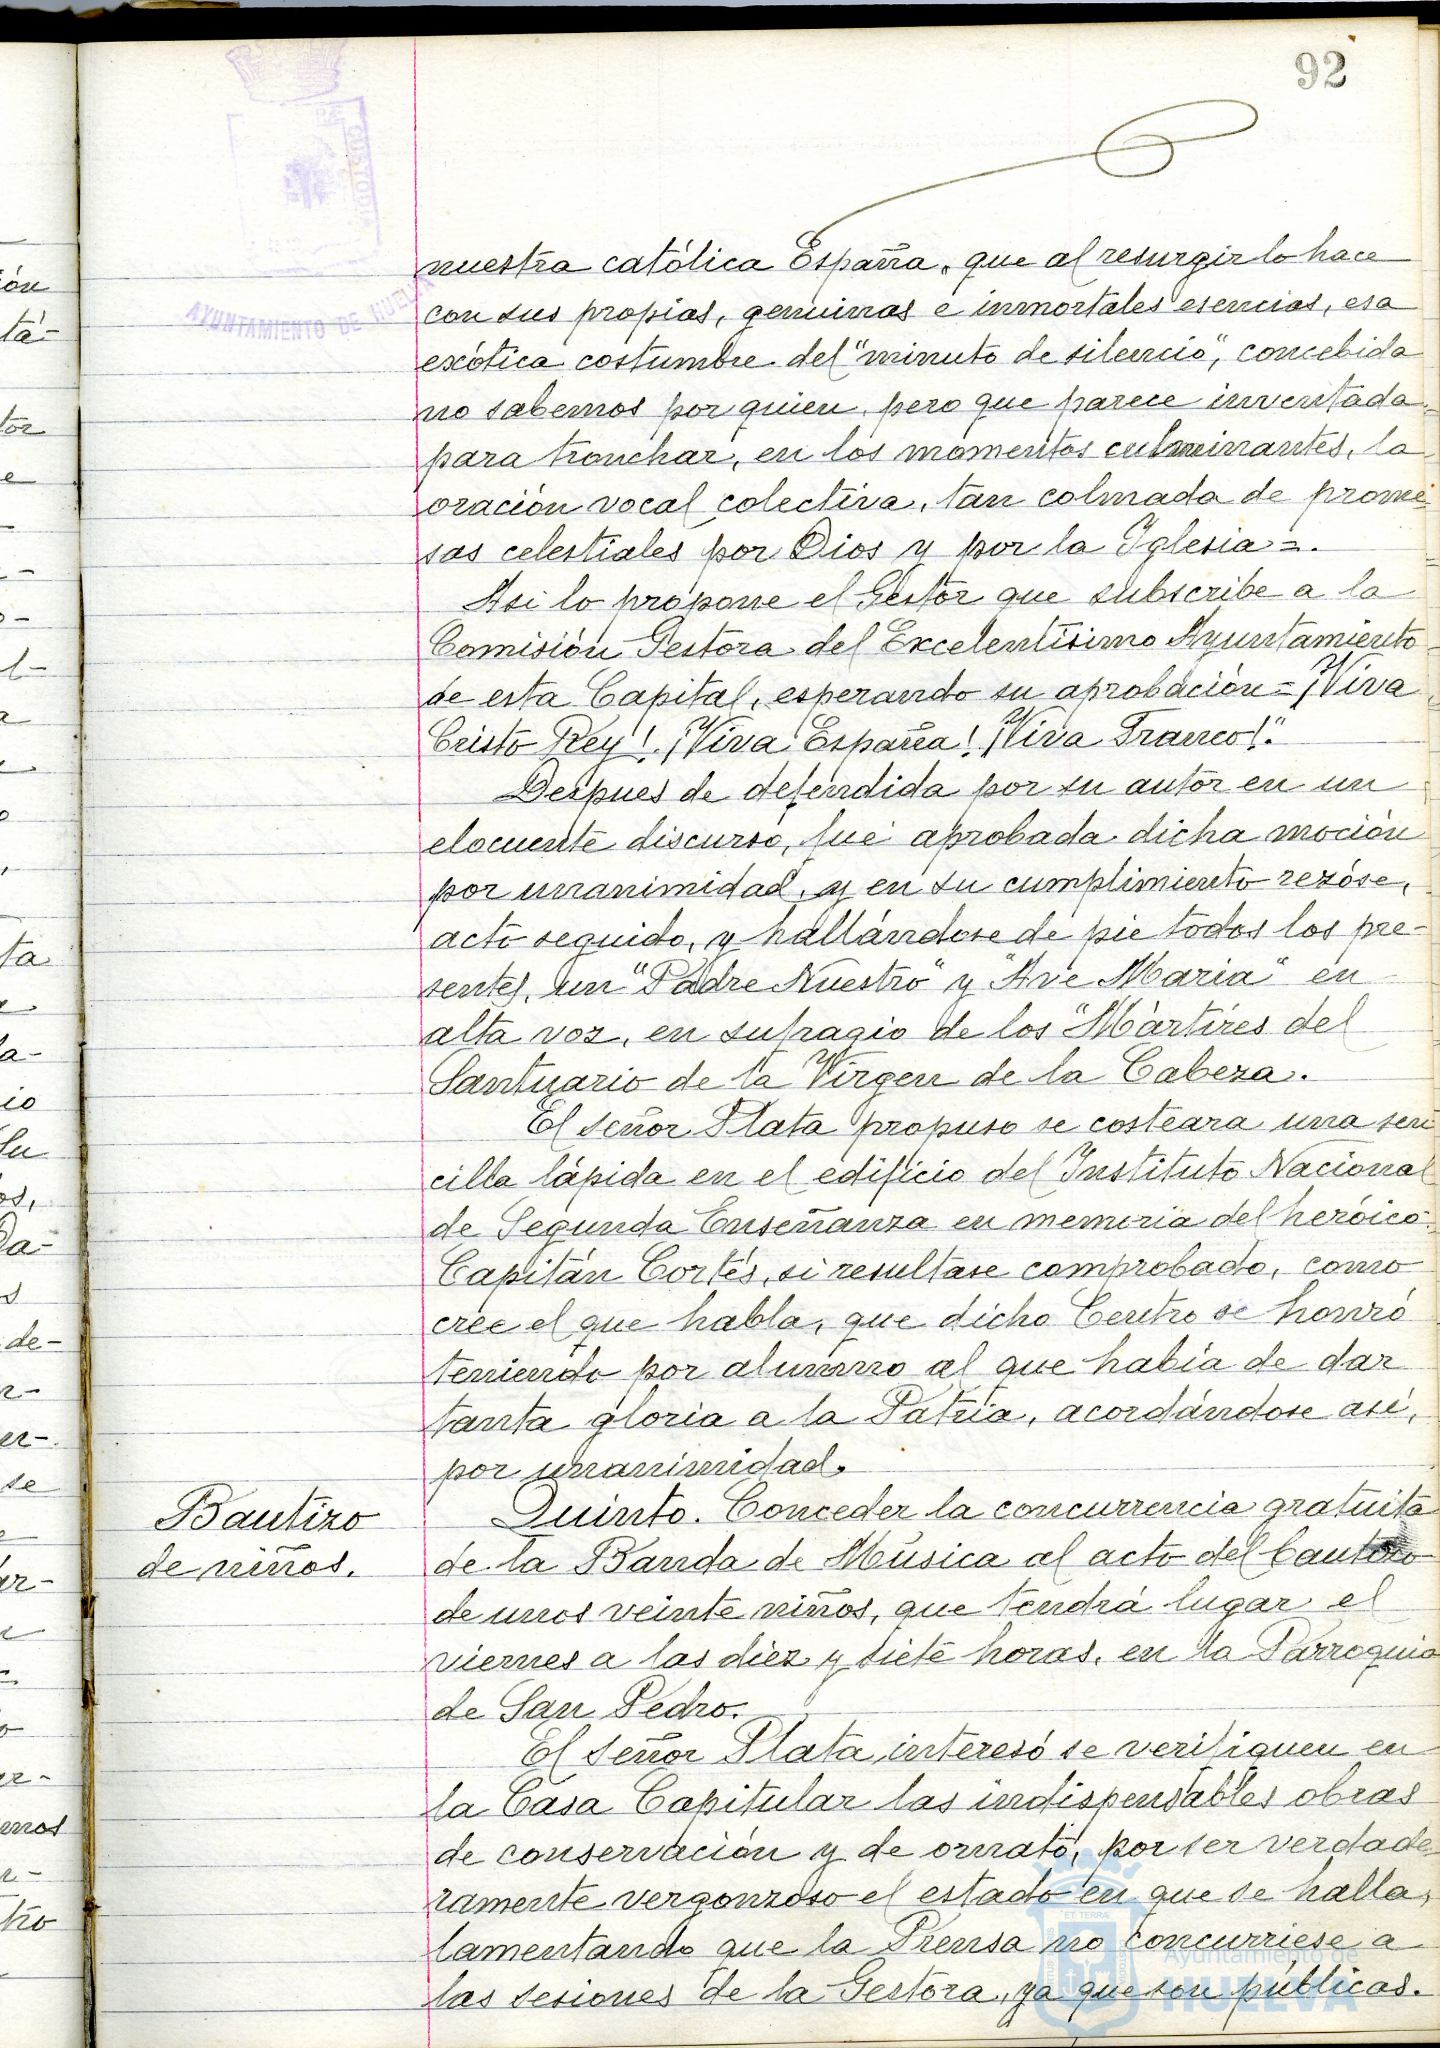 92
CUSTODIA
AYUNTAMIENTO DE HUELVA
nuestra católica España, que al resurgir lo hace
con sus propias, genuinas e inmortales esencias, esa
exótica costumbre del "minuto de silencio", concebida
no sabemos por quien, pero que parece inventada
para tronchar, en los momentos culminantes, la
oración vocal colectiva, tan colmada de prome-
sas celestiales por Dios y por la Iglesia=.
Asi lo propone el Gestor que subscribe a la
Comisión Gestora del Excelentísimo Ayuntamiento
de esta Capital, esperando su aprobación=¡Viva
Cristo Rey! ¡Viva España! ¡Viva Franco!".
Despues de defendida por su autor en un
elocuente discurso, fué aprobada dicha moción
por unanimidad, y en su cumplimiento rezóse,
acto seguido, y hallándose de pie todos los pre-
sentes, un "Padre Nuestro" y "Ave Maria" en
alta voz, en sufragio de los "Mártires del
Santuario de la Virgen de la Cabeza.
El señor Plata propuso se costeara una sen
cilla lápida en el edificio del Instituto Nacional
de Segunda Enseñanza en memoria del heróico
Capitán Cortés, si resultase comprobado, como
cree el que habla, que dicho Centro se honró
teniendo por alumno al que había de dar
tanta gloria a la Patria, acordándose así,
por unanimidad.
Bautizo
de niños.
Quinto. Conceder la concurrencia gratuita
de la Banda de Música al acto del bautizo
de unos veinte niños, que tendrá lugar el
viernes a las diez y siete horas, en la Parroquia
de San Pedro.
El señor Plata interesó se verifiquen en
la Casa Capitular las indispensables obras
de conservación y de ornato, por ser verdade-
ramente vergonzoso el estado en que se halla,
lamentando que la Prensa no concurriese a
las sesiones de la Gestora, ya que son públicas.
Ayuntamiento de
HUELVA